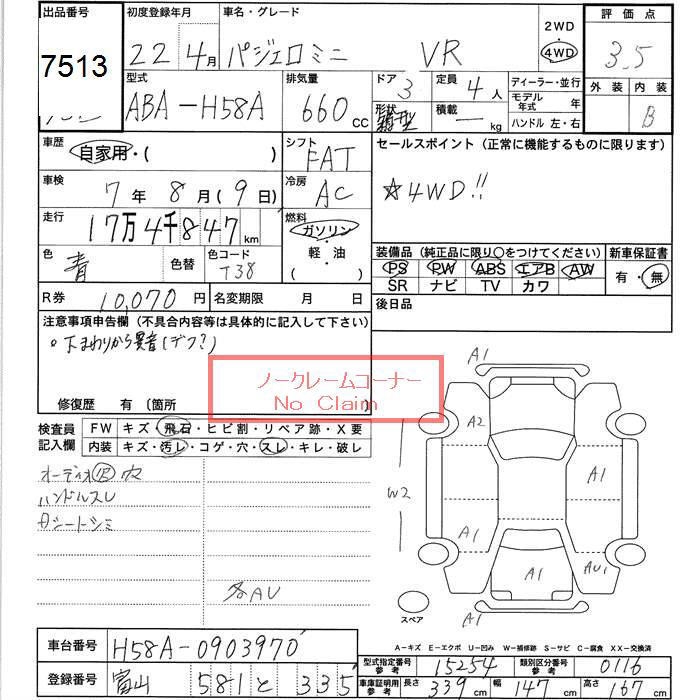 出品番号 初度登録年月 車名・グレード 評価点
7513 22 4月 パジェロミニ VR 2WD・4WD 3.5
型式 排気量 ドア 3 定員 4人 ディーラー・並行 外装 内装
ABA-H58A 660cc 形状 箱型 積載 ー kg モデル年式 年 B
ハンドル 左・右
車歴 自家用・( ) シフト FAT セールスポイント (正常に機能するものに限ります)
車検 7年 8月 (9日) 冷房 AC ☆4WD!!
走行 17万4千847km 燃料 ガソリン・軽油 ( )
色 青 色替 色コード T38 装備品 (純正品に限り○をつけてください) 新車保証書
PS PW ABS エアB AW 有・無
SR ナビ TV カワ
R券 10,070円 名変期限 月 日 後日品
注意事項申告欄 (不具合内容等は具体的に記入して下さい)
○下まわりから異音(デフ?)
ノークレームコーナー
No Claim
修復歴 有 〔箇所
検査員記入欄 FW キズ・飛石・ヒビ割・リペア跡・X要
内装 キズ・汚レ・コゲ・穴・スレ・キレ・破レ
ハンドルスレ
シートシミ
各AU
A1
A2
A1
W2
A1
A1
AU1
スペア
A1
A-キズ E-エクボ U-凹み W-補修跡 S-サビ C-腐食 XX-交換済
車台番号 H58A-0903970 型式指定番号 参考 15254 類別区分番号 参考 0116
登録番号 富山 581 と 335 車庫証明用 参考 長さ 339cm 幅 147cm 高さ 167cm